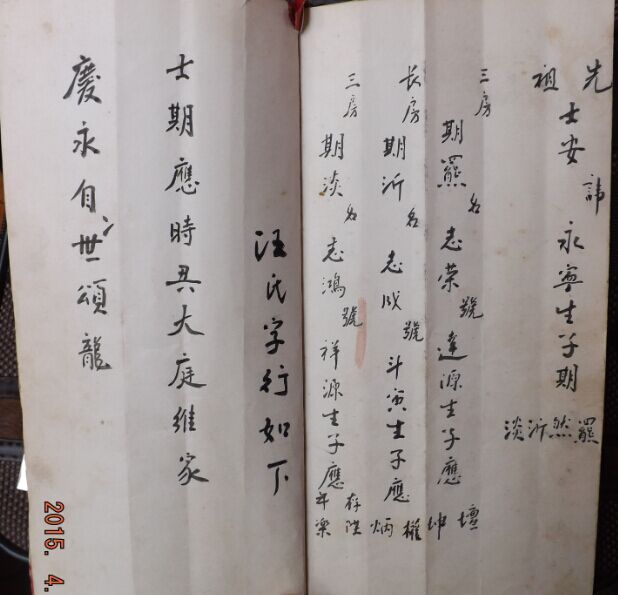 先祖士安諱永寧生子期
羆然沂淡
三房期羆名志荣號達源生子應
壇坤
长房期沂名志成號斗寅生子應
權炳
三房期淡名志鴻號祥源生子應
存陞年樂
汪氏字行如下
士期應時興大庭維家
慶永自世頌龍
2015. 4.